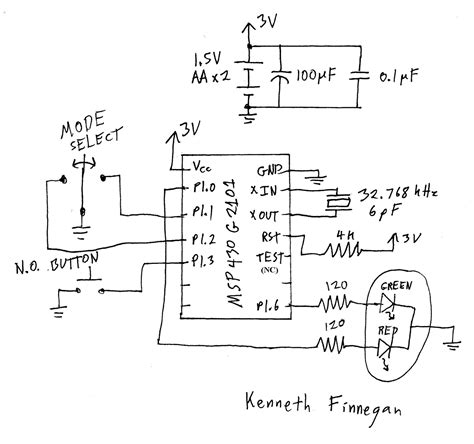 3V
1.5V
AA x 2
100µF
0.1µF
MODE
SELECT
3V
Vcc
GND
P1.0
X IN
32.768 kHz
6pF
P1.1
XOUT
P1.2
RST
3V
N.O. BUTTON
P1.3
TEST
(NC)
MSP430G2101
P1.6
120
GREEN
120
RED
Kenneth Finnegan